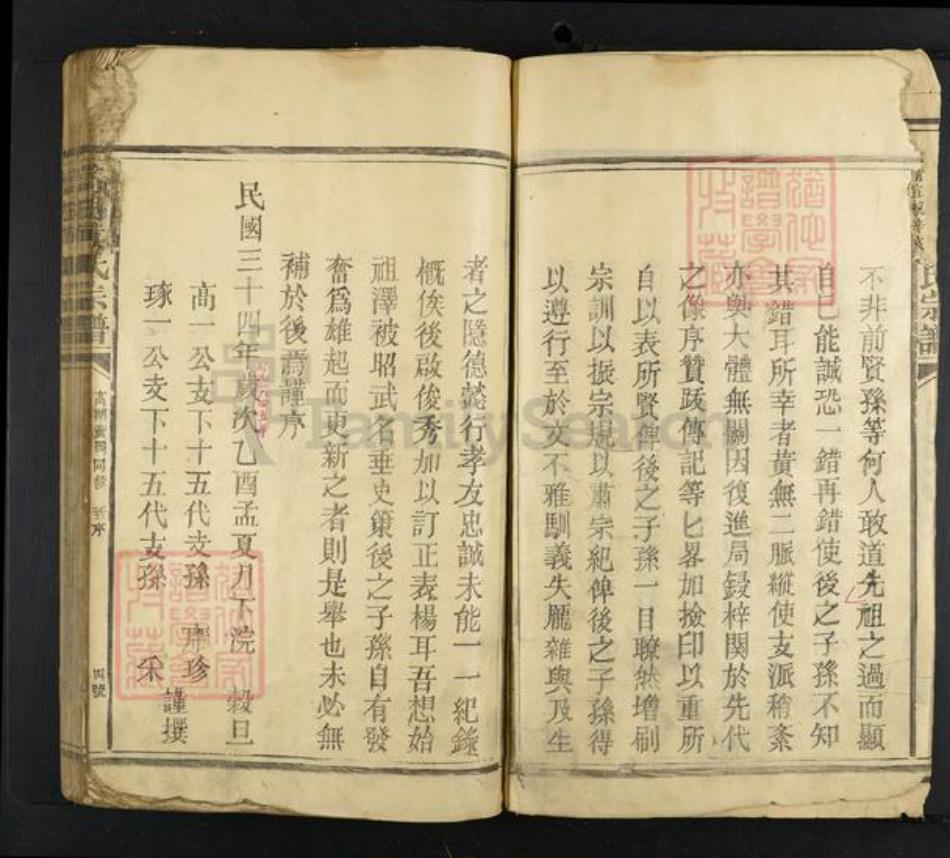 氏宗譜
不非前賢孫等何人敢道先祖之過而顯
自己能誠恐一錯再錯使後之子孫不知
其錯耳所幸者黃無二脈縱使支派稍紊
亦與大體無關因復進局鋟梓関於先代
之像序贊跋傳記等匕畧加撿印以重所
自以表所賢俾後之子孫一目瞭然增刷
宗訓以振宗規以肅宗紀俾後之子孫得
以遵行至於文不雅馴義失龐雜與及生
者之隱德懿行孝友忠誠未能一一紀錄
概俟後啟俊秀加以訂正表楊耳吾想始
祖澤被昭武名垂史策後之子孫自有發
奮爲雄起而更新之者則是舉也未必無
補於後焉謹序
民國三十四年歲次乙酉孟夏月下浣 穀旦
高一公支下十五代支孫 齊珍
琢一公支下十五代支孫 采
謹撰
氏宗譜
序
四號
猶他家譜學會收藏
猶他家譜學會收藏
FamilySearch